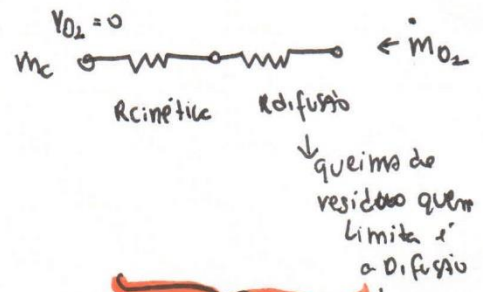 YO₂ = 0
mc ← ṁO₂
Rcinética Rdifusão
↓
queima de
resíduo quem
limita é
a Difusão